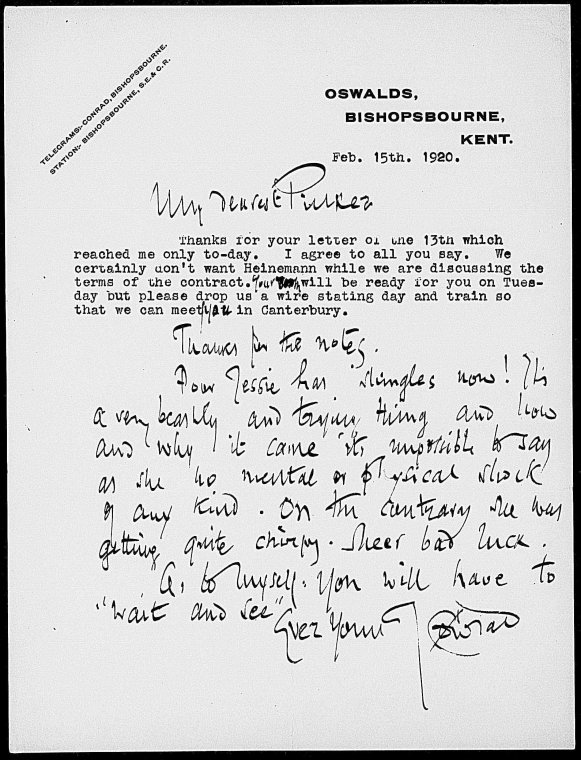 TELEGRAMS:- CONRAD, BISHOPSBOURNE.
STATION:- BISHOPSBOURNE, S.E. & C. R.
OSWALDS,
BISHOPSBOURNE,
KENT.
Feb. 15th. 1920.
My dearest Pinker
Thanks for your letter of the 13th which
reached me only to-day. I agree to all you say. We
certainly don't want Heinemann while we are discussing the
terms of the contract. Your room will be ready for you on Tues-
day but please drop us a wire stating day and train so
that we can meet you in Canterbury.
Thanks for the notes.
Poor Jessie has shingles now! It's
a very beastly and trying thing and how
and why it came it's impossible to say
as she no mental or physical shock
of any kind. On the contrary she was
getting quite chirpy. Sheer bad luck.
As to myself. You will have to
"wait and see"
Ever Yours J Conrad